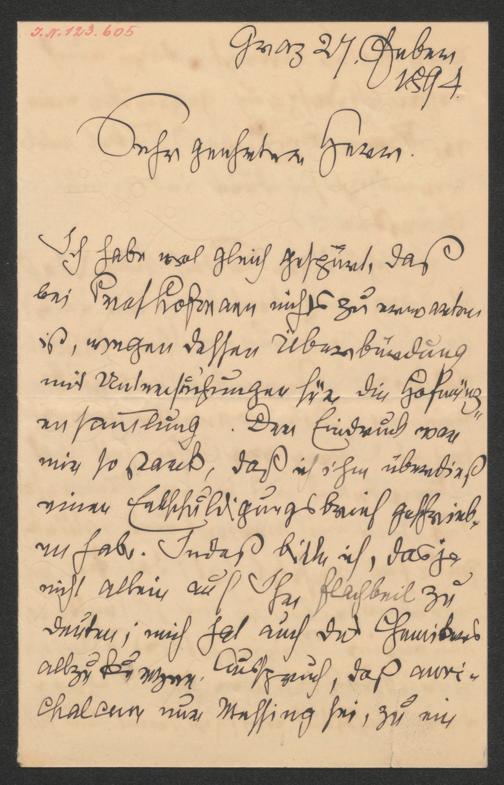 I.N. 123.605
Graz 27. Feber
1894.
Sehr geehrter Herr.
Ich habe wol gleich gespürt, daß
bei Prof Hofmann nichts zu erwarten
is, wegen dessen Überbürdung
mit Untersuchungen für die Hofmünz-
ensammlung. Der Eindruck war
mir so stark, daß ich ihm überdieß
einen Entschuldigungsbrief geschrieb-
en habe. Indeß bitte ich, das ja
nicht allein auf Ihr Flachbeil zu
deuten; mich hat auch des Chemikers
allzu Ausspruch, daß auri-
chalcum nur Messing sei, zu ein